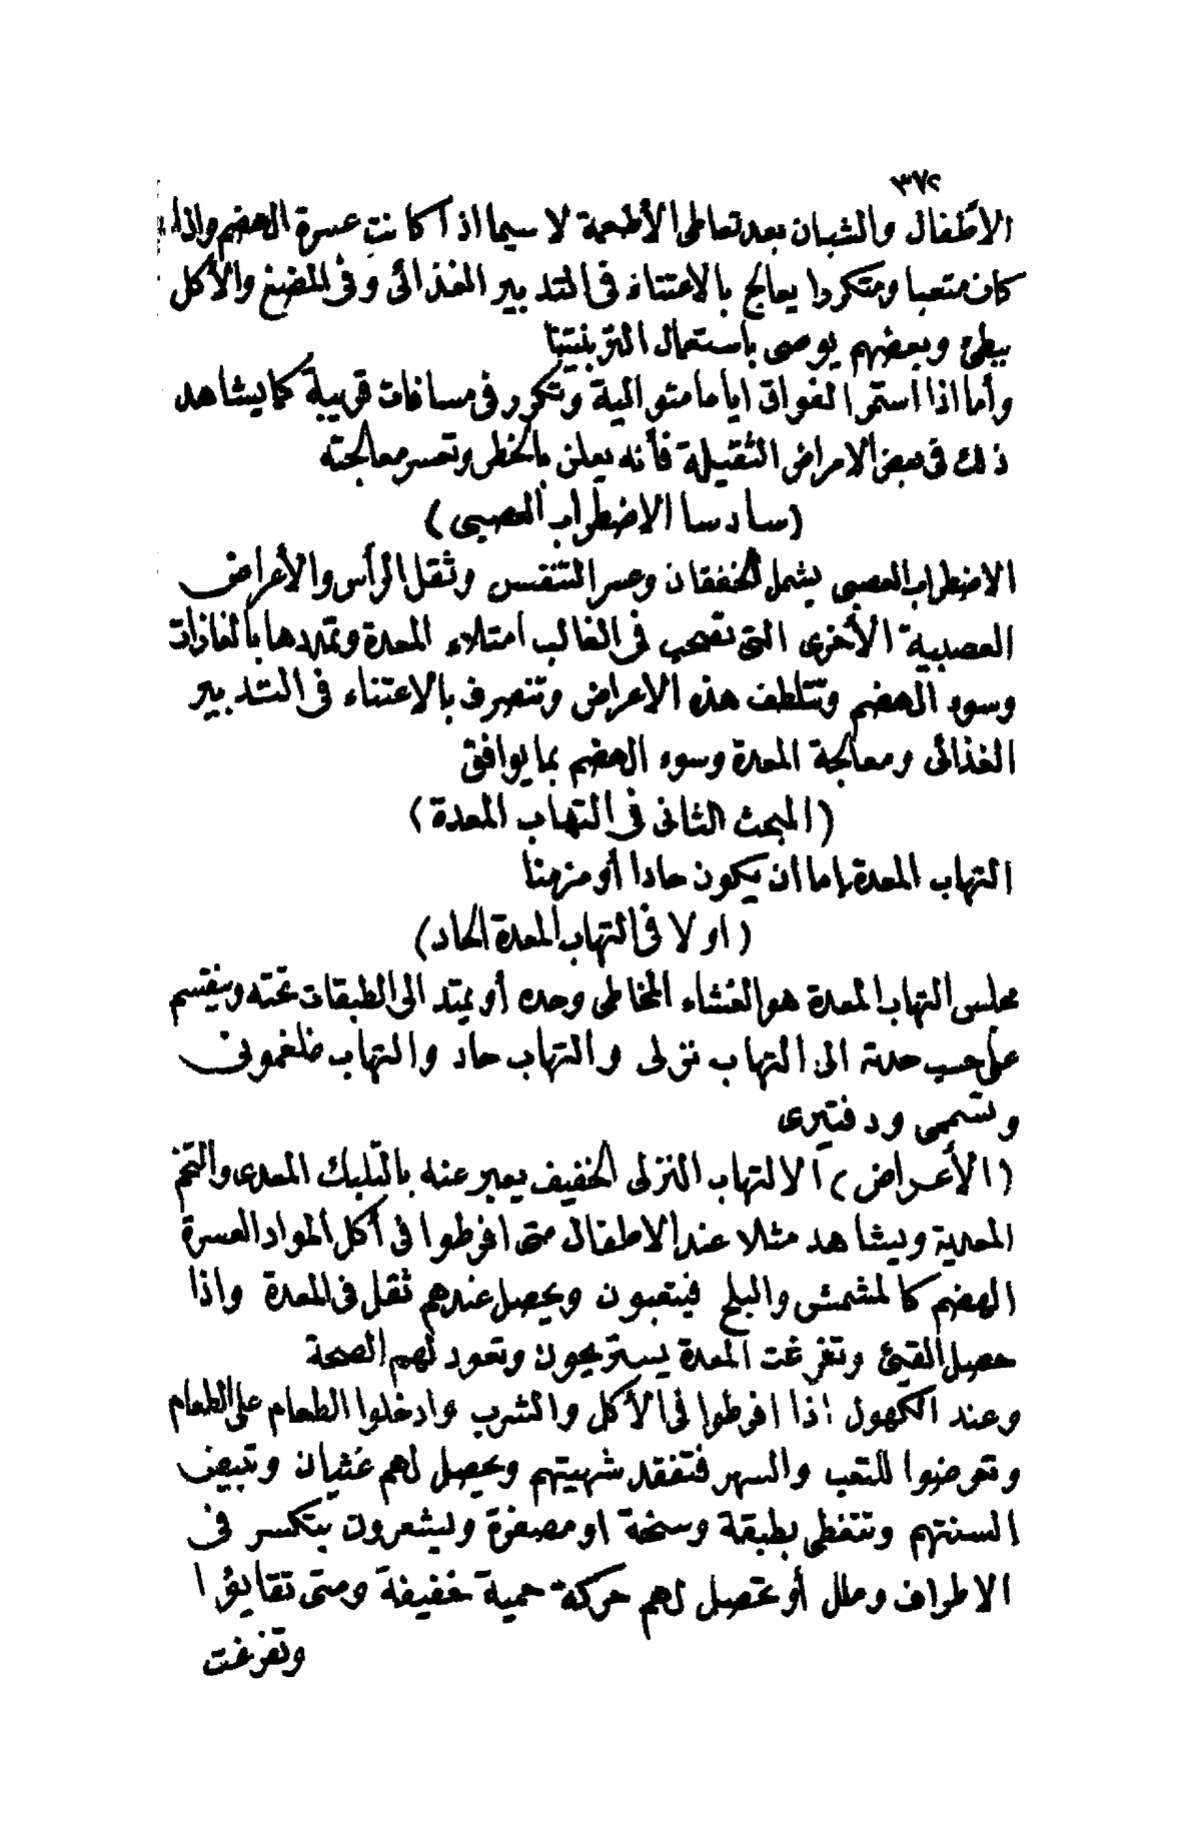 ٣٧٢
الأطفال والشبان بعد تعاطى الأطعمة لا سيما اذا كانت عسرة الهضم واذا
كان متعبا ومتكررا يعالج بالاعتناء فى التدبير الغذائى وفى المضغ والأكل
ببطئ وبعضهم يوصى باستعمال التربنتينا
وأما اذا استمر الفواق اياما متوالية وتكرر فى مسافات قريبة كما يشاهد
ذلك فى بعض الامراض الثقيلة فأنه يعلن بالخطر وتعسر معالجته
(سادسا الاضطراب العصبى)
الاضطراب العصبى يشمل الخفقان وعسر التنفس وثقل الرأس والأعراض
العصبية الأخرى التى تصحب فى الغالب امتلاء المعدة وتمددها بالغازات
وسوء الهضم وتتلطف هذه الاعراض وتنصرف بالاعتناء فى التدبير
الغذائى ومعالجة المعدة وسوء الهضم بما يوافق
(المبحث الثانى فى التهاب المعدة)
التهاب المعدة إما ان يكون حادا أو مزمنا
(اولا فى التهاب المعدة الحاد)
مجلس التهاب المعدة هو الغشاء المخاطى وحده أو يمتد الى الطبقات تحته وينقسم
على حسب حدته الى التهاب نزلى والتهاب حاد والتهاب فلغمونى
وتسممى ودفتيرى
(الأعراض) الالتهاب النزلى الخفيف يعبر عنه بالتلبك المعدى والتخم
المعدية ويشاهد مثلا عند الاطفال متى افرطوا فى أكل المواد العسرة
الهضم كالمشمش والبلح فيتعبون ويحصل عندهم ثقل فى المعدة واذا
حصل القيئ وتفرغت المعدة يستريحون وتعود لهم الصحة
وعند الكهول اذا افرطوا فى الأكل والشرب وادخلوا الطعام على الطعام
وتعرضوا للتعب والسهر فتفقد شهيتهم ويحصل لهم غثيان وتبيض
السنتهم وتتغطى بطبقة وسخة او مصفرة ويشعرون بتكسر فى
الاطراف وملل أو تحصل لهم حركة حمية خفيفة ومتى تقايؤا
وتفرغت